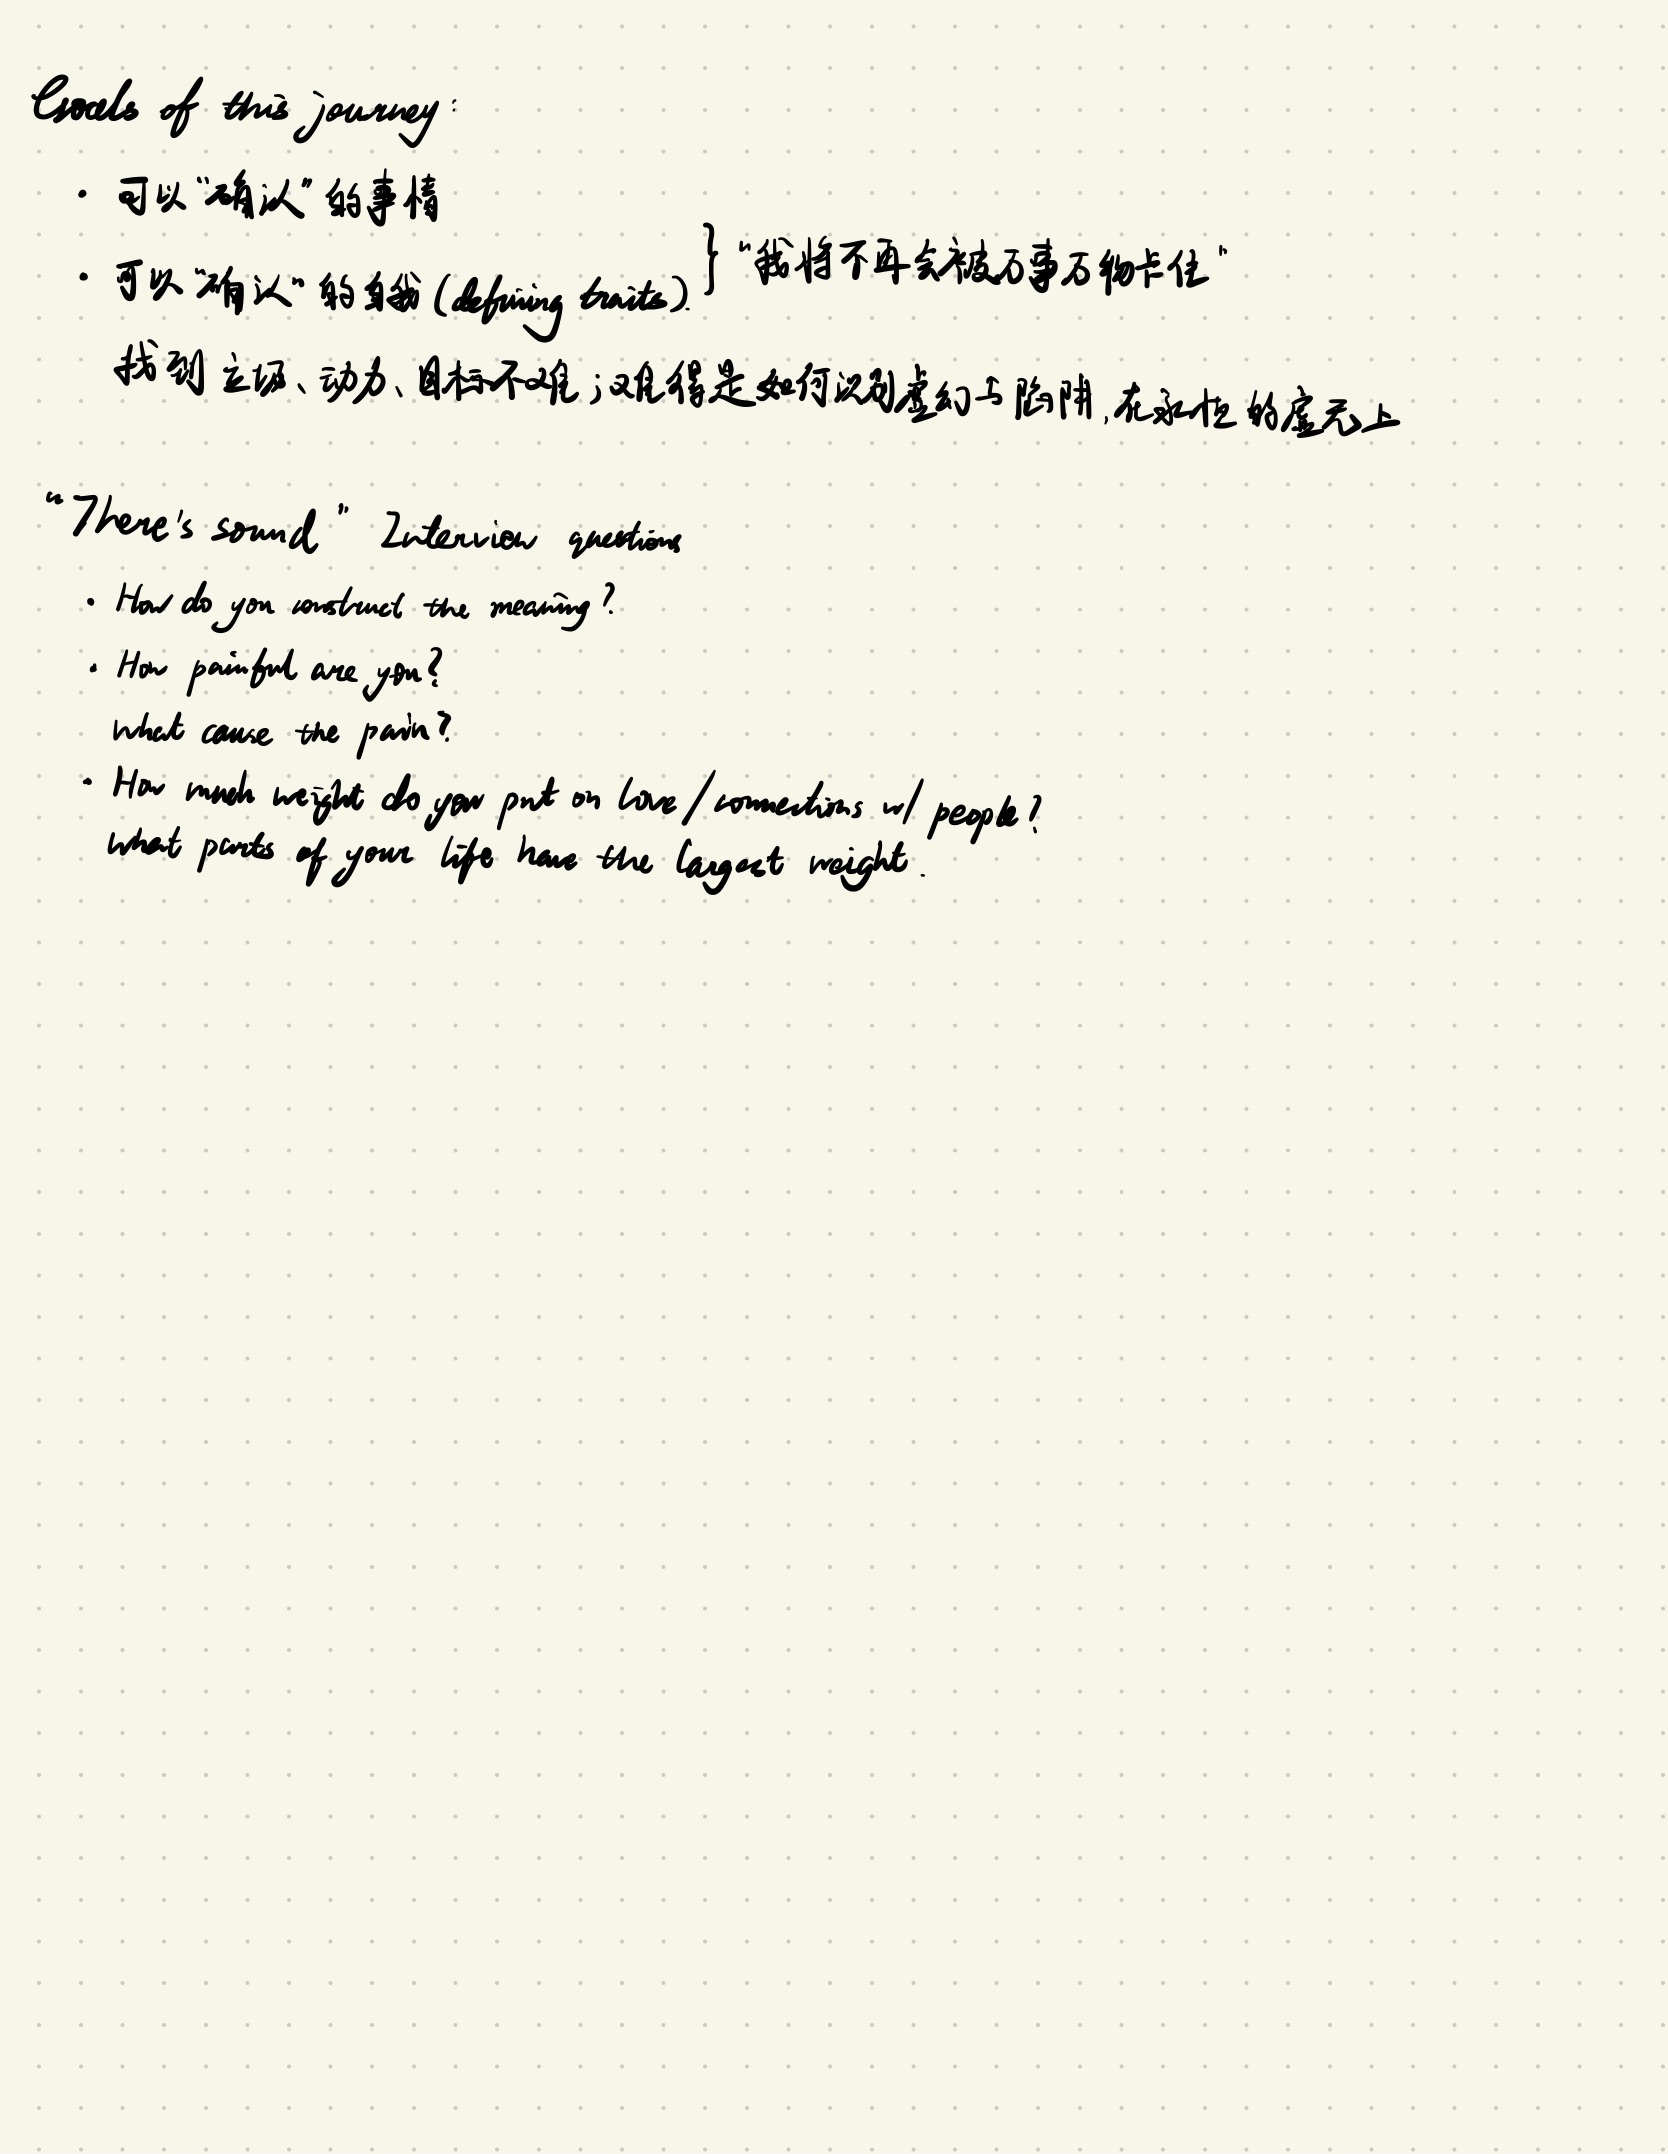 Goals of this journey:
· 可以“确认”的事情
· 可以“确认”的自我 (defining traits).
} “我将不再会被万事万物卡住”
找到立场、动力、目标不难；难得是如何识别虚幻与陷阱，在永恒的虚无上
“There's sound” Interview questions
· How do you construct the meaning?
· How painful are you?
what cause the pain?
· How much weight do you put on love/connections w/ people?
what parts of your life have the largest weight.